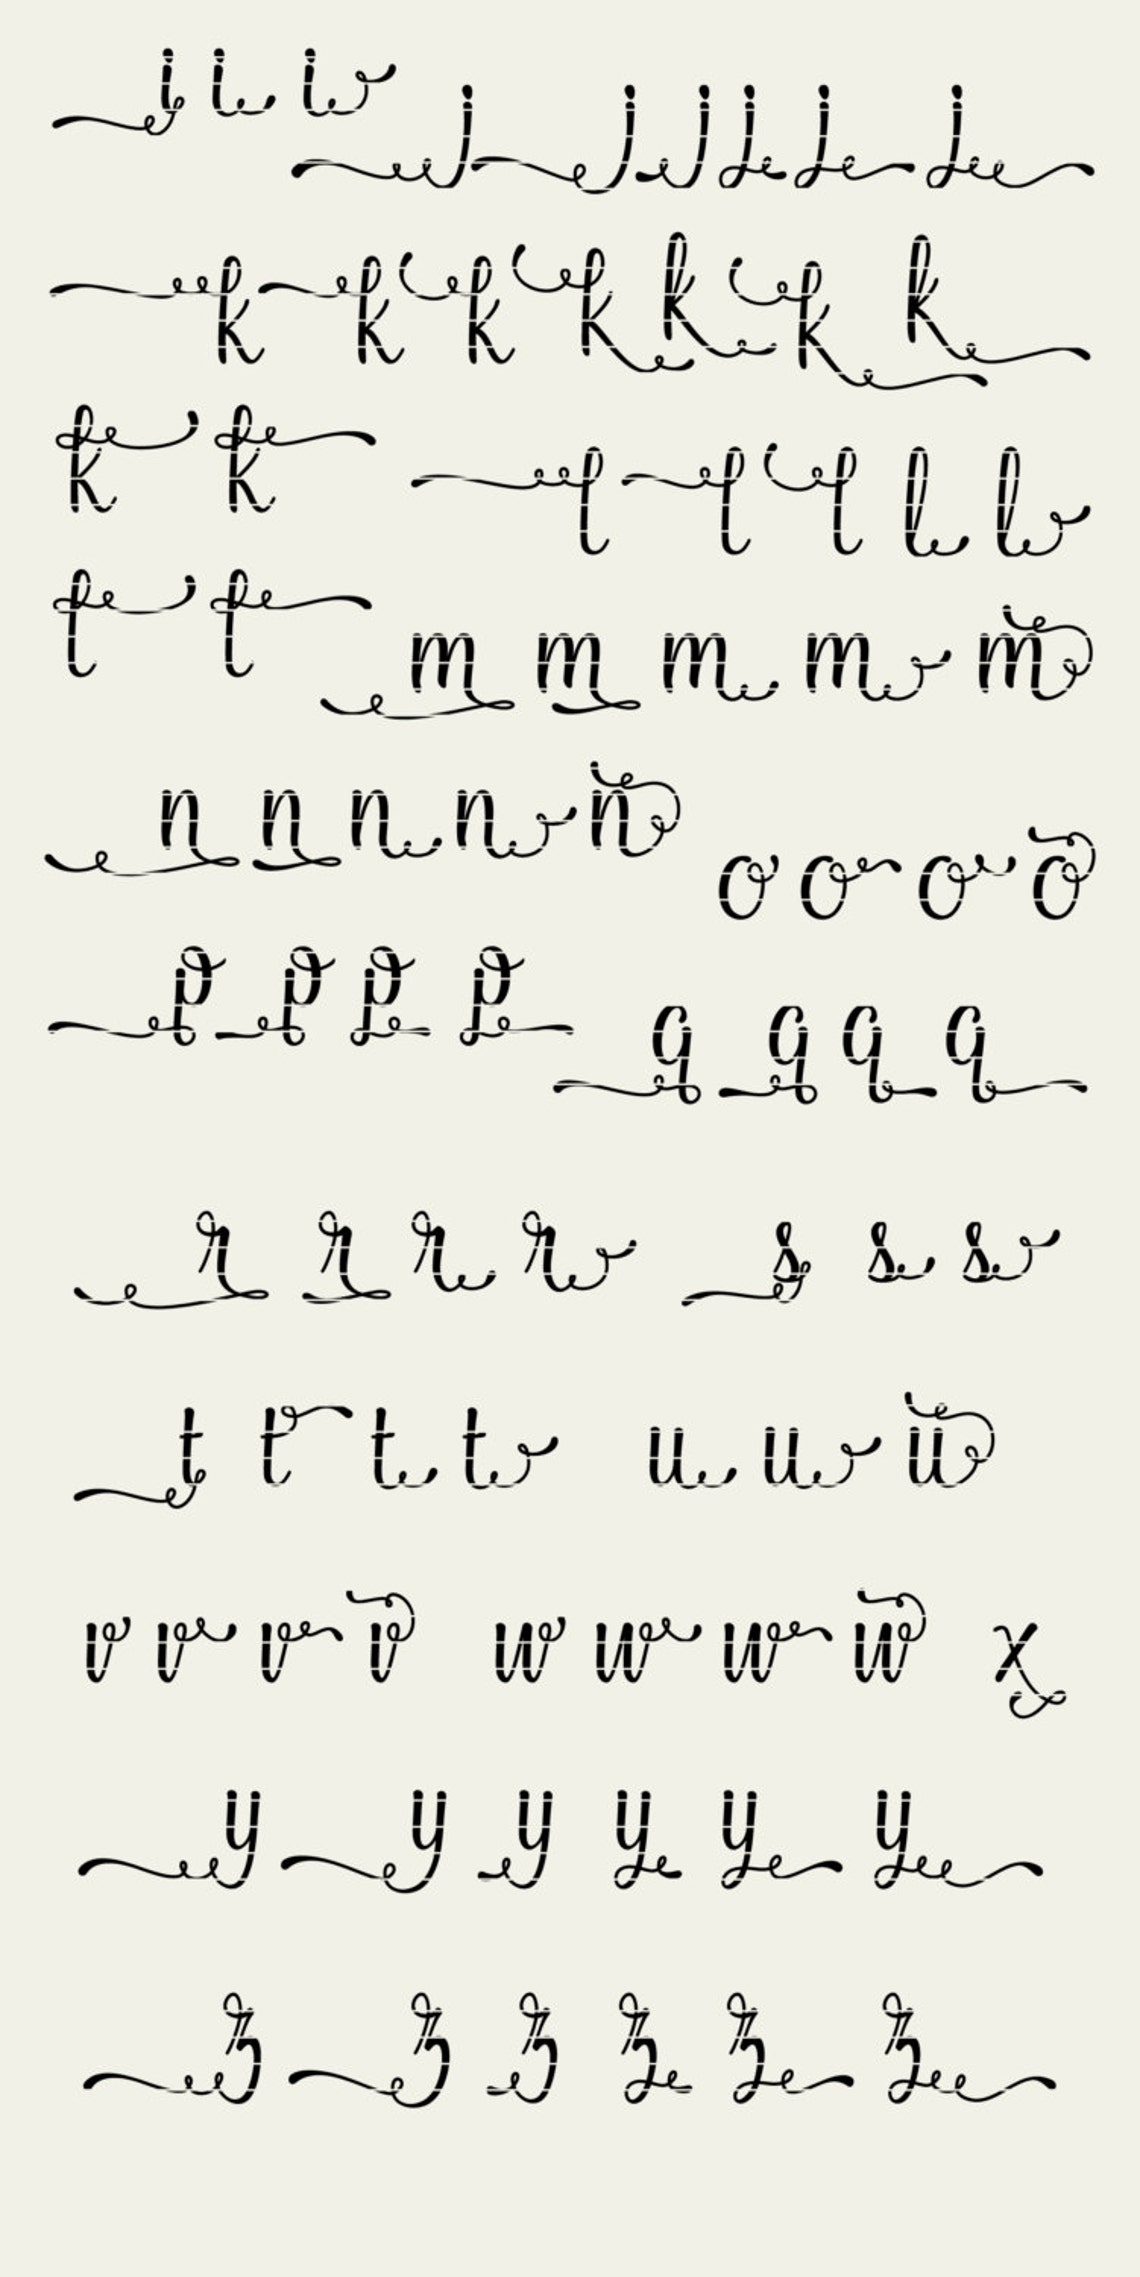 i i i
j j j j j j
k k k k k k k
k k
l l l l l
l l
m m m m m
n n n n n
o o o o
p p p p
q q q q
r r r r s s s
t t t t u u u
v v v v w w w w x
y y y y y y
z z z z z z